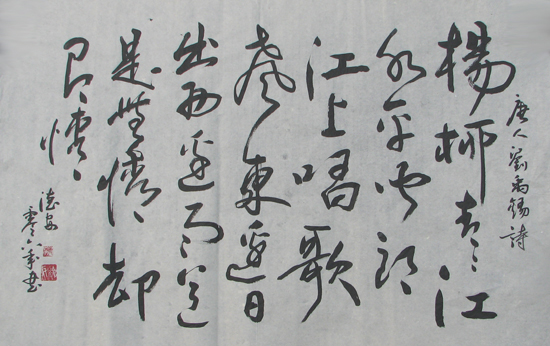 唐人劉禹錫詩
楊柳青々江
水平聞郎
江上唱歌
聲東邊日
出西邊雨道
是無情却
情
零六年書